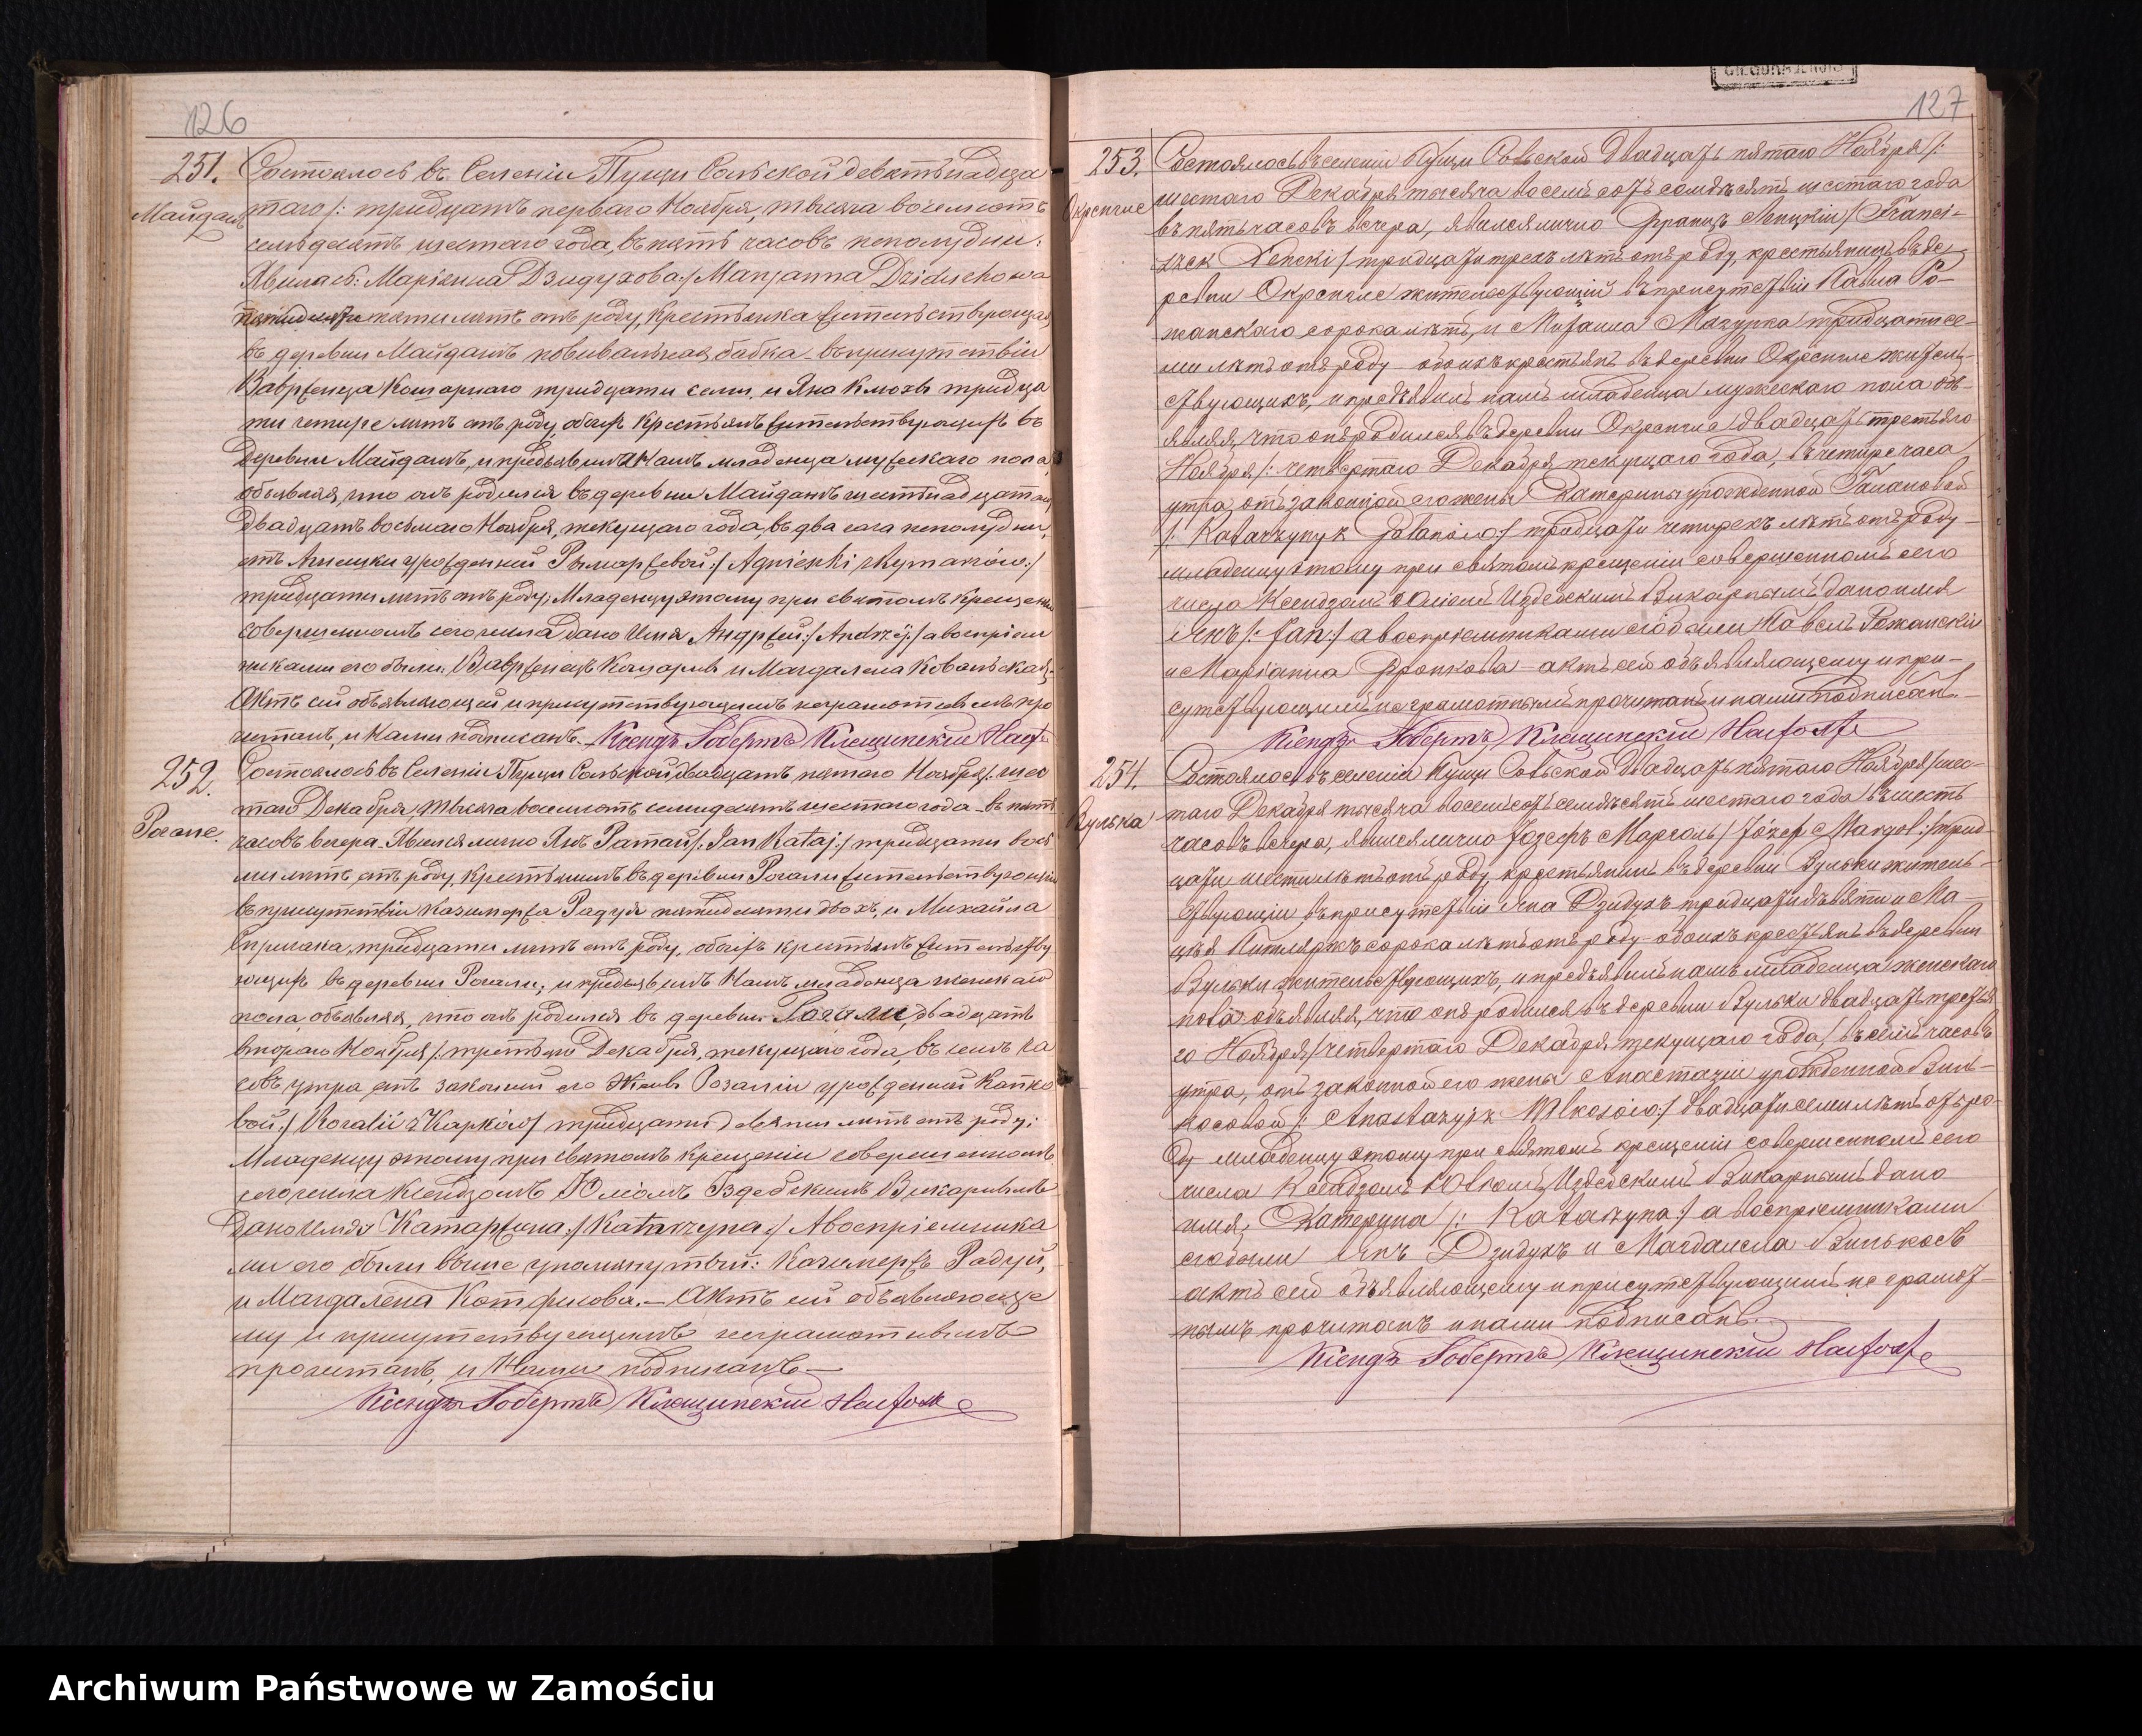 126
251.
Майданъ
Состоялось въ Селенiи Пущи Сольской девятьнадца
таго /: тридцать перваго Ноября, тысяча восемьсотъ
семьдесятъ шестаго года, въ пять часовъ пополудни:
Явилась: Марiянна Дзидухова :/ Maryanna Dziduchowa
пяти лѣтъ отъ роду, крестьянка жительствующая
въ деревни Майданъ повивальная бабка въ присутствiи
Вавренца тридцати семи, и Яна тридца
ти четыре лѣтъ отъ роду, обоихъ Крестьянъ жительствующихъ въ
деревни Майданъ, и предъявилъ Намъ младенца мужескаго пола
объявляя, что онъ родился въ деревни Майданъ шестьнадцатаго
двадцать восьмаго Ноября, текущаго года, въ два часа пополудни,
отъ Агнешки урожденной Рымаржовой :/ Agnieszki z Rymarzów :/
тридцати лѣтъ отъ роду; Младенцу этому при святомъ Крещенiи
совершенномъ сего числа дано Имя Андржей :/ Andrzéj :/ а воспрiем
никами его были: Вавренецъ и Магдалена Ковальская,
Актъ сей объявляющей и присутствующимъ неграмотнымъ про
читанъ, и Нами подписанъ. Ксендзъ Робертъ Клещинскiй
252.
Рогале.
Состоялось въ Селенiи Пущи Сольской двадцать пятаго Ноября /: шес
таго Декабря, тысяча восемьсотъ семьдесятъ шестаго года въ пять
часовъ вечера. Явился лично Янъ Ратай /: Jan Rataj :/ тридцати вось
ми лѣтъ отъ роду, крестьянинъ въ деревни Рогали жительствующiй
въ присутствiи Казимержа Радуя пятидесяти двохъ, и Михайла
тридцати лѣтъ отъ роду, обоихъ крестьянъ жительству
ющихъ въ деревни Рогали, и предъявилъ Намъ младенца женскаго
пола, объявляя, что онъ родился въ деревни Рогали, двадцать
втораго Ноября /: четвертаго Декабря, текущаго года, въ семь ча
совъ утра отъ законной его Жены Розалiи урожденной Капко
вой :/ Rozalii z Kapków :/ тридцати девяти лѣтъ отъ роду;
Младенцу этому при святомъ крещенiи совершенномъ
сего числа Ксендзомъ Юлiомъ Издебскимъ Викарнымъ
дано Имя Катаржина :/ Katarzyna :/ А воспрiемника
ми его были выше упомянутый: Казимержъ Радуй,
и Магдалена Котфисова. — Актъ сей объявляюще
му и присутствующимъ неграмотнымъ
прочитанъ, и Нами подписанъ —
Ксендзъ Робертъ Клещинскiй
127
253.
Окрепгле
Состоялось въ селенiи Пущи Сольской двадцать пятаго Ноября /:
шестаго Декабря тысяча восемьсотъ семьдесятъ шестаго года
въ пять часовъ вечера, явился лично Францъ Лепцкiй /: Franci-
szek Lencki / тридцати трехъ лѣтъ отъ роду, крестьянинъ въ де
ревни Окрепгле жительствующiй въ присутствiи Павла Ро-
жанскаго сорока лѣтъ, и Михаила Мазурка тридцати се-
ми лѣтъ отъ роду обоихъ крестьянъ въ деревни Окрепгле житель-
ствующихъ, и предъявилъ намъ младенца мужескаго пола объ-
являя, что онъ родился въ деревни Окрепгле двадцать третьяго
Ноября /: четвертаго Декабря текущаго года, въ четыре часа
утра, отъ законной его жены Екатерины урожденной Галановой
/: Katarzyny z Galanów :/ тридцати четырехъ лѣтъ отъ роду —
младенцу этому при святомъ крещенiи совершенномъ сего
числа Ксендзомъ Юлiемъ Издебскимъ Викарнымъ дано имя
Янъ /: Jan :/ а воспрiемниками его были Павелъ Рожанскiй
и Марiанна актъ сей объявляющему и при-
сутствующимъ неграмотнымъ прочитанъ и нами подписанъ. —
Ксендзъ Робертъ Клещинскiй
254.
Вулька
Состоялось въ селенiи Пущи Сольской двадцать пятаго Ноября /: шес-
таго Декабря тысяча восемьсотъ семьдесятъ шестаго года въ шесть
часовъ вечера, явился лично Іозефъ Марголь /: Józef Margol :/ трид-
цати шести лѣтъ отъ роду, крестьянинъ въ деревни Вульки житель-
ствующiй въ присутствiи Яна Дзидухъ тридцати девяти и Ма-
цѣя сорока лѣтъ отъ роду обоихъ крестьянъ въ деревни
Вульки жительствующихъ, и предъявилъ намъ младенца женскаго
пола объявляя, что онъ родился въ деревни Вульки двадцать третья
го Ноября /: четвертаго Декабря текущаго года / въ семь часовъ
утра, отъ законной его жены Анастазiи урожденной Виль-
косовой /: Anastazyi z Wilkosów :/ двадцати семи лѣтъ отъ ро-
ду младенцу этому при святомъ крещенiи совершенномъ сего
числа Ксендзомъ Юлiемъ Издебскимъ Викарнымъ дано
имя, Екатерина /: Katarzyna :/ а воспрiемниками
его были Янъ Дзидухъ и Магдалена Вилькосъ
актъ сей объявляющему и присутствующимъ не грамот-
нымъ прочитанъ и нами подписанъ. —
Ксендзъ Робертъ Клещинскiй
Archiwum Państwowe w Zamościu